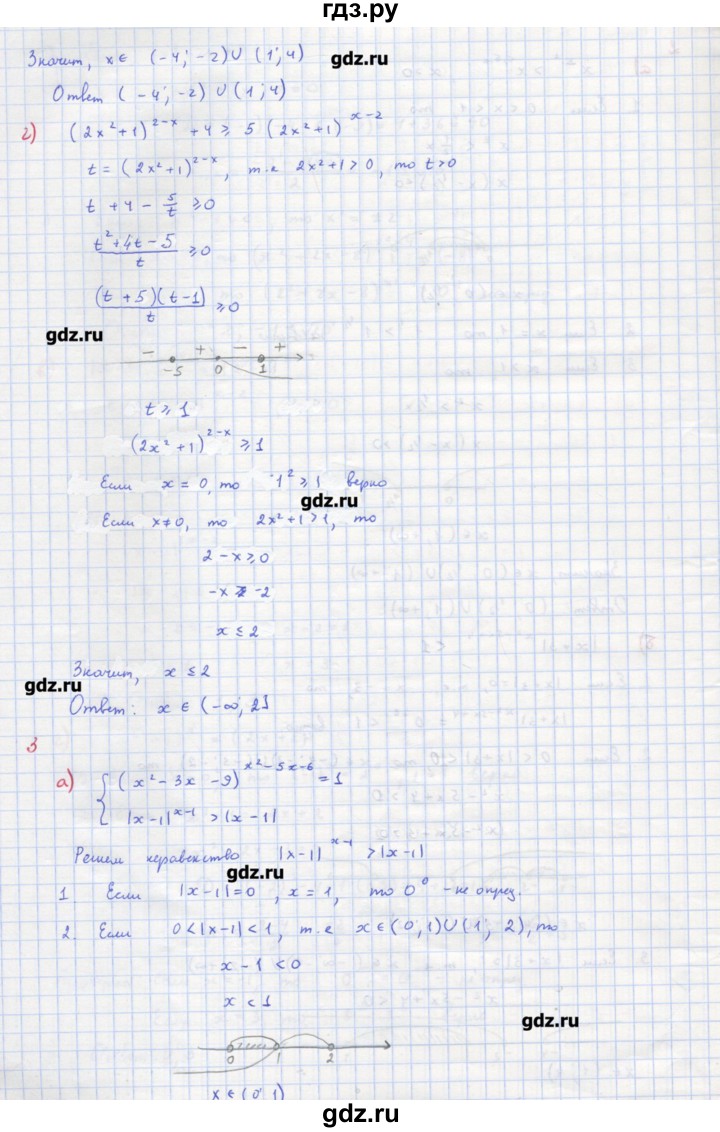 гдз.ру
Значит, x ∈ (-4; -2) ∪ (1; 4)
gdz.ru
Ответ (-4; -2) ∪ (1; 4)
г) (2x²+1)^(2-x) + 4 ≥ 5 (2x²+1)^(x-2)
t = (2x²+1)^(2-x), т.е 2x²+1 > 0, то t > 0
t + 4 - 5/t ≥ 0
(t²+4t-5)/t ≥ 0
((t+5)(t-1))/t ≥ 0
gdz.ru
- + - +
-5 0 1
t ≥ 1
(2x²+1)^(2-x) ≥ 1
Если x = 0, то 1² ≥ 1 верно
gdz.ru
Если x ≠ 0, то 2x²+1 > 1, то
2 - x ≥ 0
-x ≥ -2
x ≤ 2
Значит, x ≤ 2
gdz.ru
Ответ: x ∈ (-∞; 2]
3
а) { (x²-3x-9)^(x²-5x-6) = 1
|x-1|^(x-1) > |x-1|
Решем неравенство |x-1|^(x-1) > |x-1|
gdz.ru
1. Если |x-1| = 0, x = 1, то 0⁰ - не опред.
2. Если 0 < |x-1| < 1, т.е x ∈ (0; 1) ∪ (1; 2), то
x - 1 < 0
x < 1
gdz.ru
0 1 2
x ∈ (0; 1)
gdz.ru